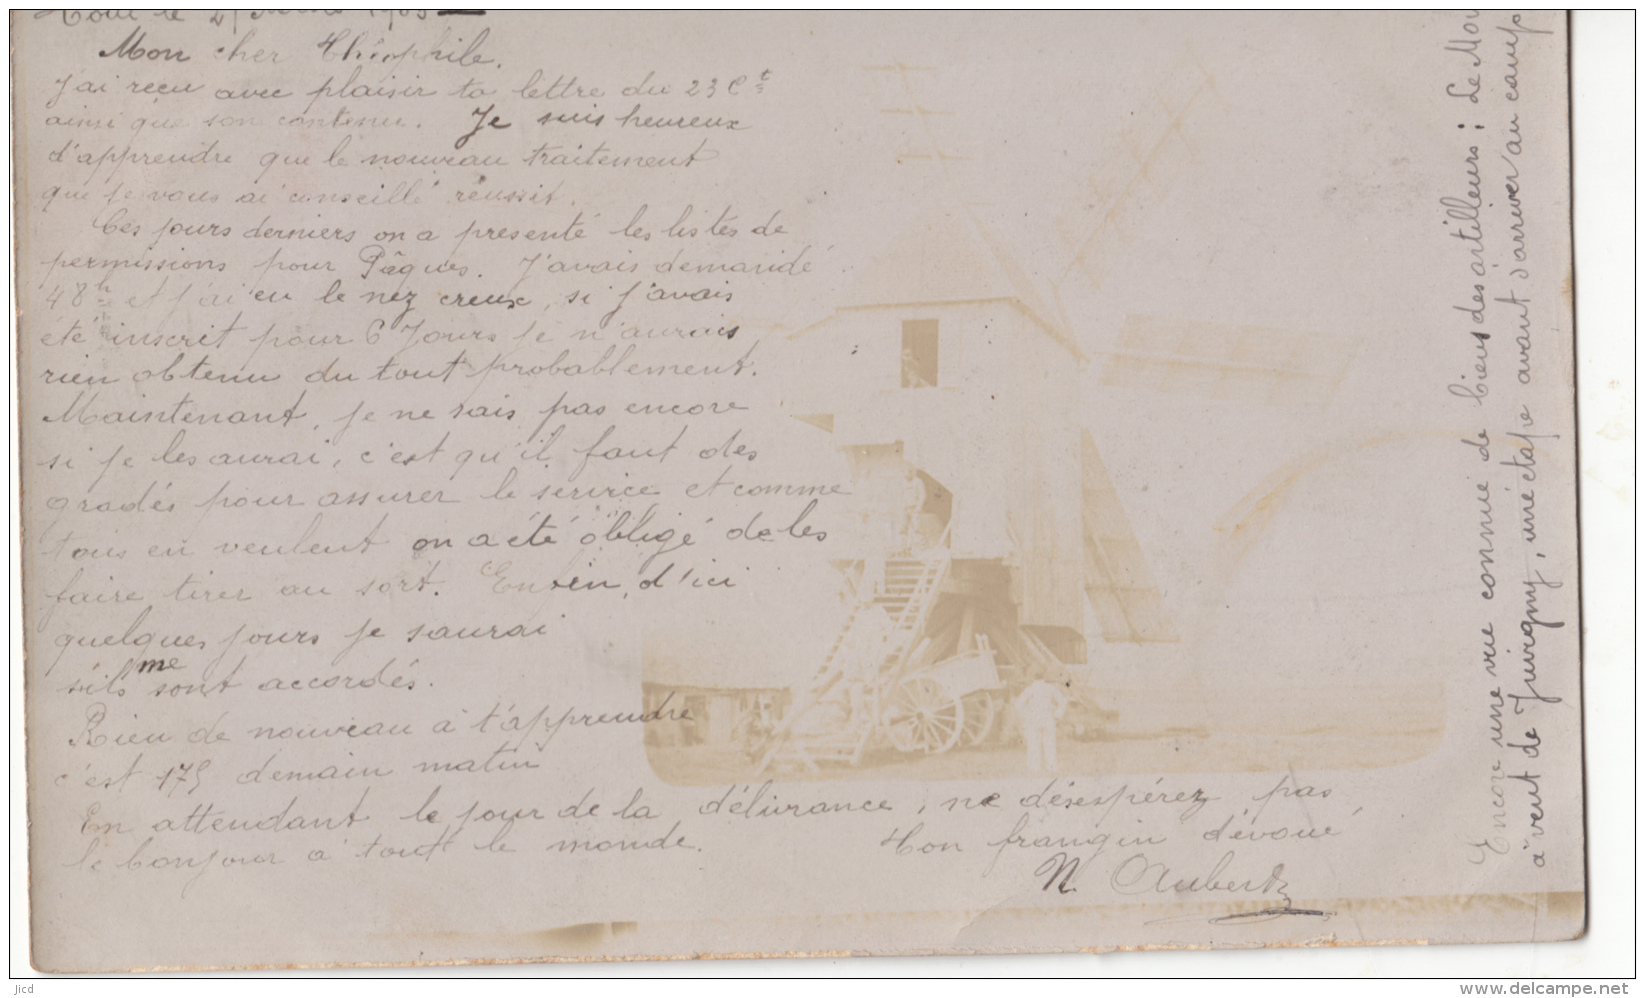 Toul le 27 1905
Mon cher Théophile.
J'ai reçu avec plaisir ta lettre du 23 Ct
ainsi que son contenu. Je suis heureux
d'apprendre que le nouveau traitement
que je vous ai conseillé réussit.
Ces jours derniers on a présenté les listes de
permissions pour Pâques. J'avais demandé
48h et j'ai eu le nez creux, si j'avais
été inscrit pour 6 Jours je n'aurais
rien obtenu du tout probablement.
Maintenant, je ne sais pas encore
si je les aurai, c'est qu'il faut des
gradés pour assurer le service et comme
tous en veulent on a été obligé de les
faire tirer au sort. Enfin, d'ici
quelques jours je saurai
s'ils me sont accordés.
Rien de nouveau à t'apprendre
c'est 175 demain matin
En attendant le jour de la délivrance, ne désespérez pas,
le bonjour à tout le monde.
Ton frangin dévoué,
N. Aubert
Encore une vue connue de bien des artilleurs : Le Mou
à vent de Juvigny, une étape avant d'arriver au camp
Jicd
www.delcampe.net